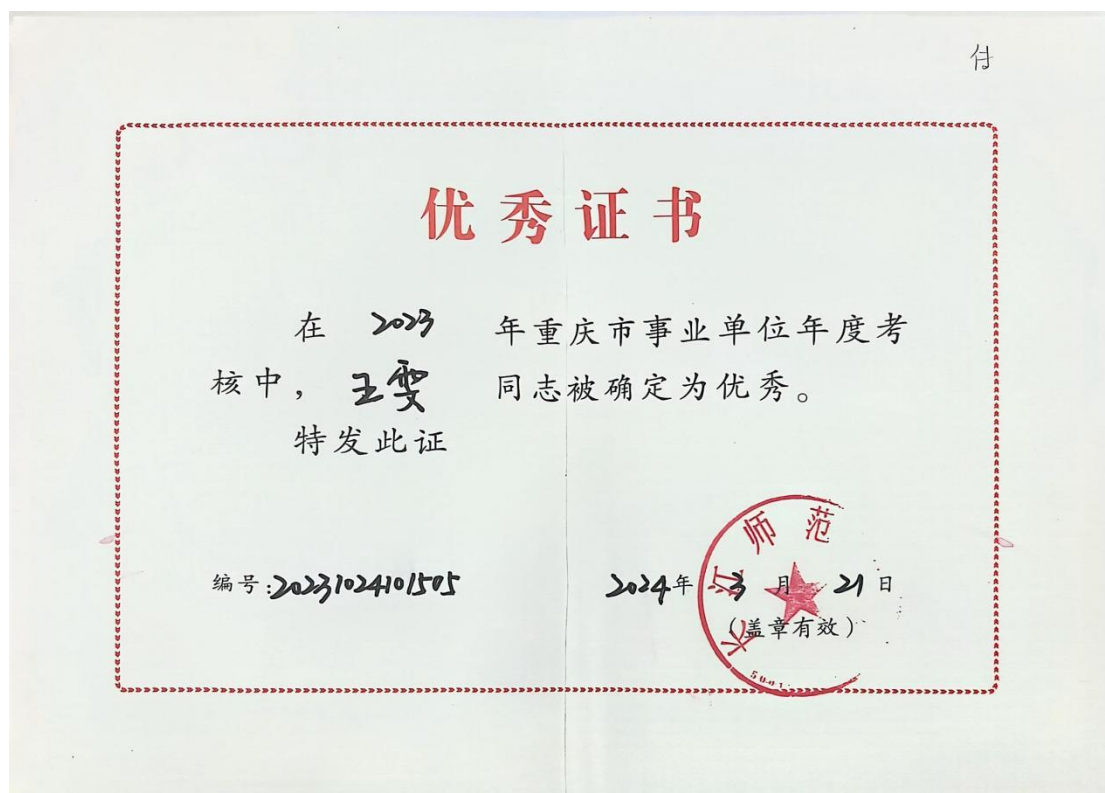 优秀证书
在 2023 年重庆市事业单位年度考
核中，王雯 同志被确定为优秀。
特发此证
编号:20231024101505 2024年3月21日
(盖章有效)
长江师范
5001